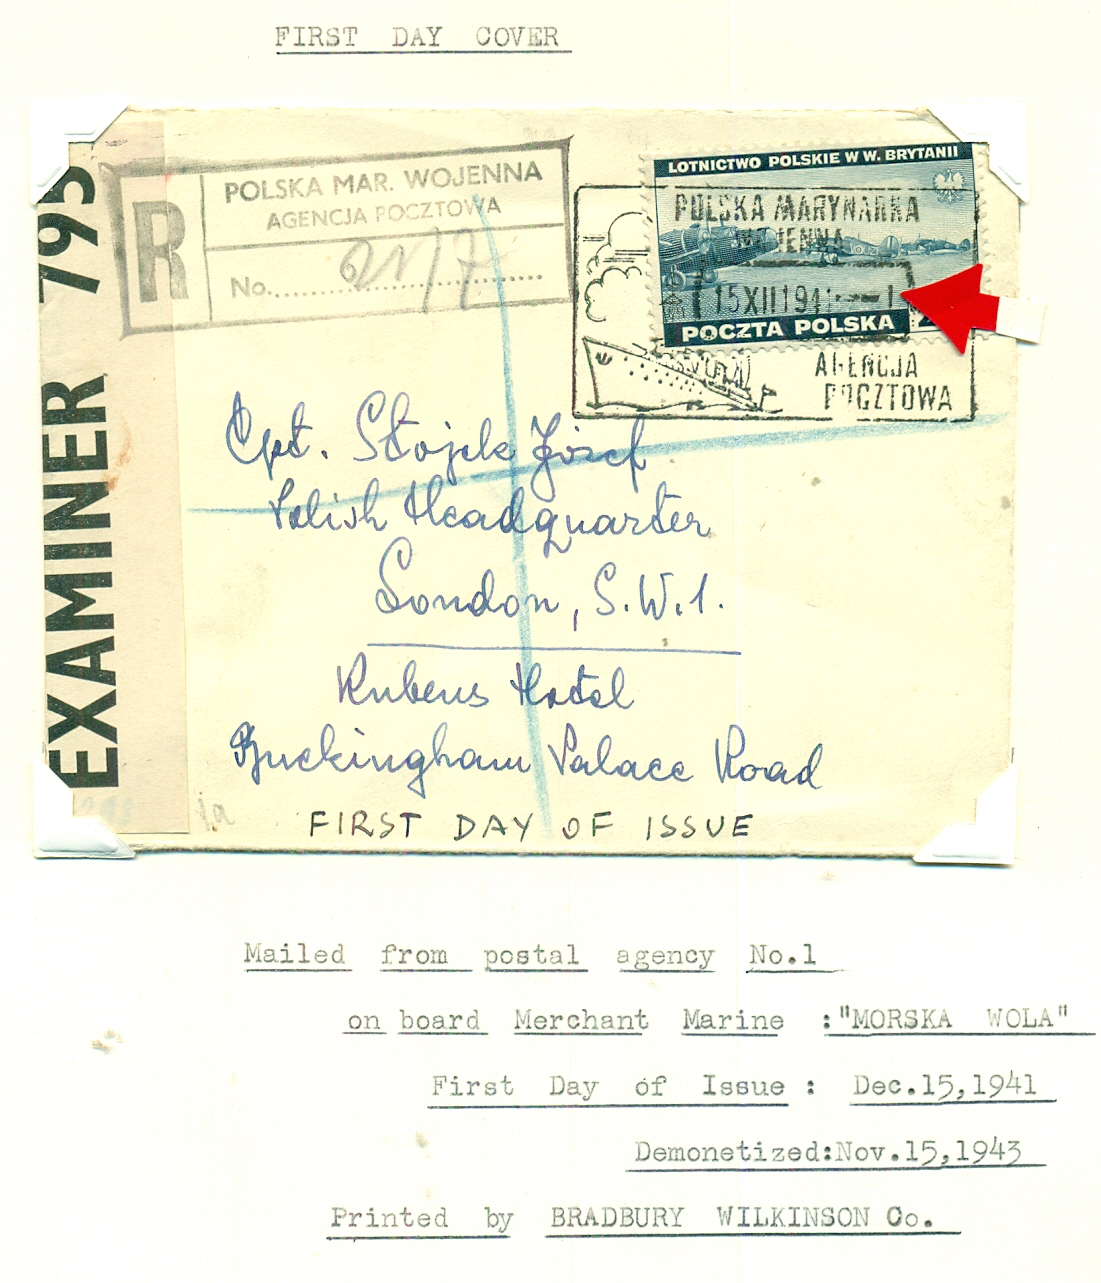 FIRST DAY COVER
EXAMINER 795
R
POLSKA MAR. WOJENNA
AGENCJA POCZTOWA
No.
LOTNICTWO POLSKIE W W. BRYTANII
POLSKA MARYNARKA
WOJENNA
15XII1941
POCZTA POLSKA
AGENCJA
POCZTOWA
Cpt. Stojek Józef
Polish Headquarter
London, S.W.1.
Rubens Hotel
Buckingham Palace Road
1a
FIRST DAY OF ISSUE
Mailed from postal agency No.1
on board Merchant Marine :"MORSKA WOLA"
First Day of Issue : Dec.15,1941
Demonetized:Nov.15,1943
Printed by BRADBURY WILKINSON Co.